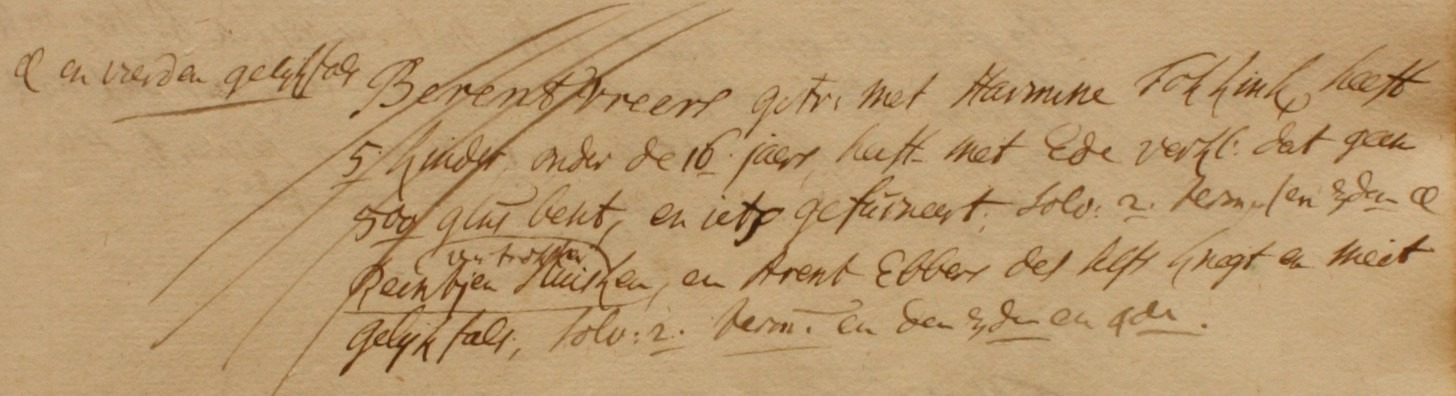 & en vierden gelijkfals
Berent Arreers getr: met Harmine Fokkink, heeft
5 kinder, onder de 16 jaers, heeft met Ede verkl: dat geen
500 glns bent, en iets gefurneert. solv: 2. termn en 3den &
vertrokken
Reintjen Huisken, en Arent Ebbers des selfs knegt en meit
gelijkfals, solv: 2. term: en den 3den en 4den.